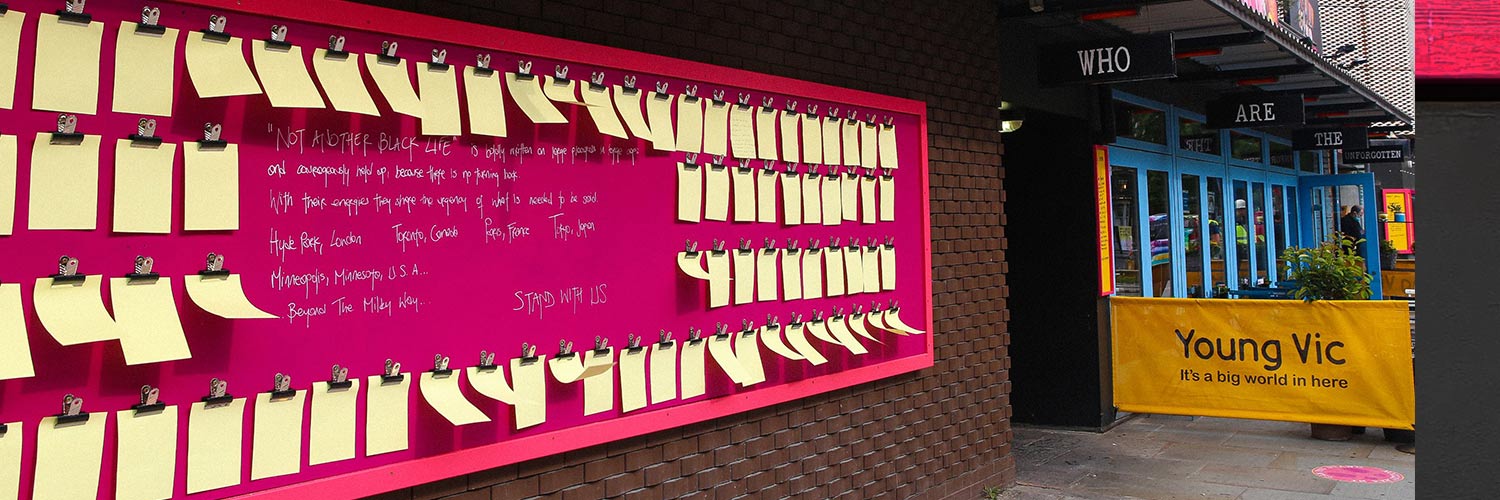 "NOT ANOTHER BLACK LIFE" is boldly written on large placards in large caps
and courageously held up, because there is no turning back.
With their energies they share the urgency of what is needed to be said.
Hyde Park, London Toronto, Canada Paris, France Tokyo, Japan
Minneapolis, Minnesota, U.S.A...
...Beyond The Milky Way...
STAND WITH US
WHO
ARE
THE
UNFORGOTTEN
Young Vic
It's a big world in here